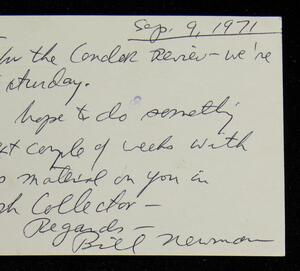 Sep. 9, 1971
the Condor Review - we're
hope to do something
couple of weeks with
material on you in
Collector -
Regards -
Bill Newman